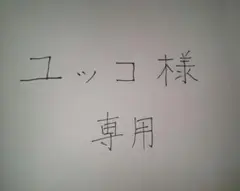 ユッコ様
専用